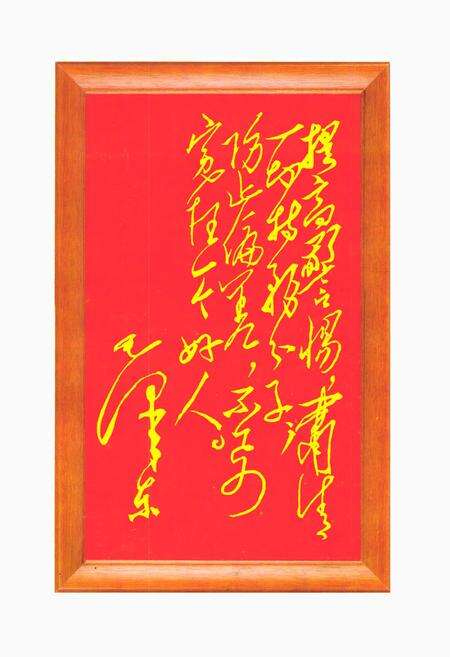 提高警惕，肃清
一切特务分子；
防止偏差，不要
冤枉一个好人。
毛泽东